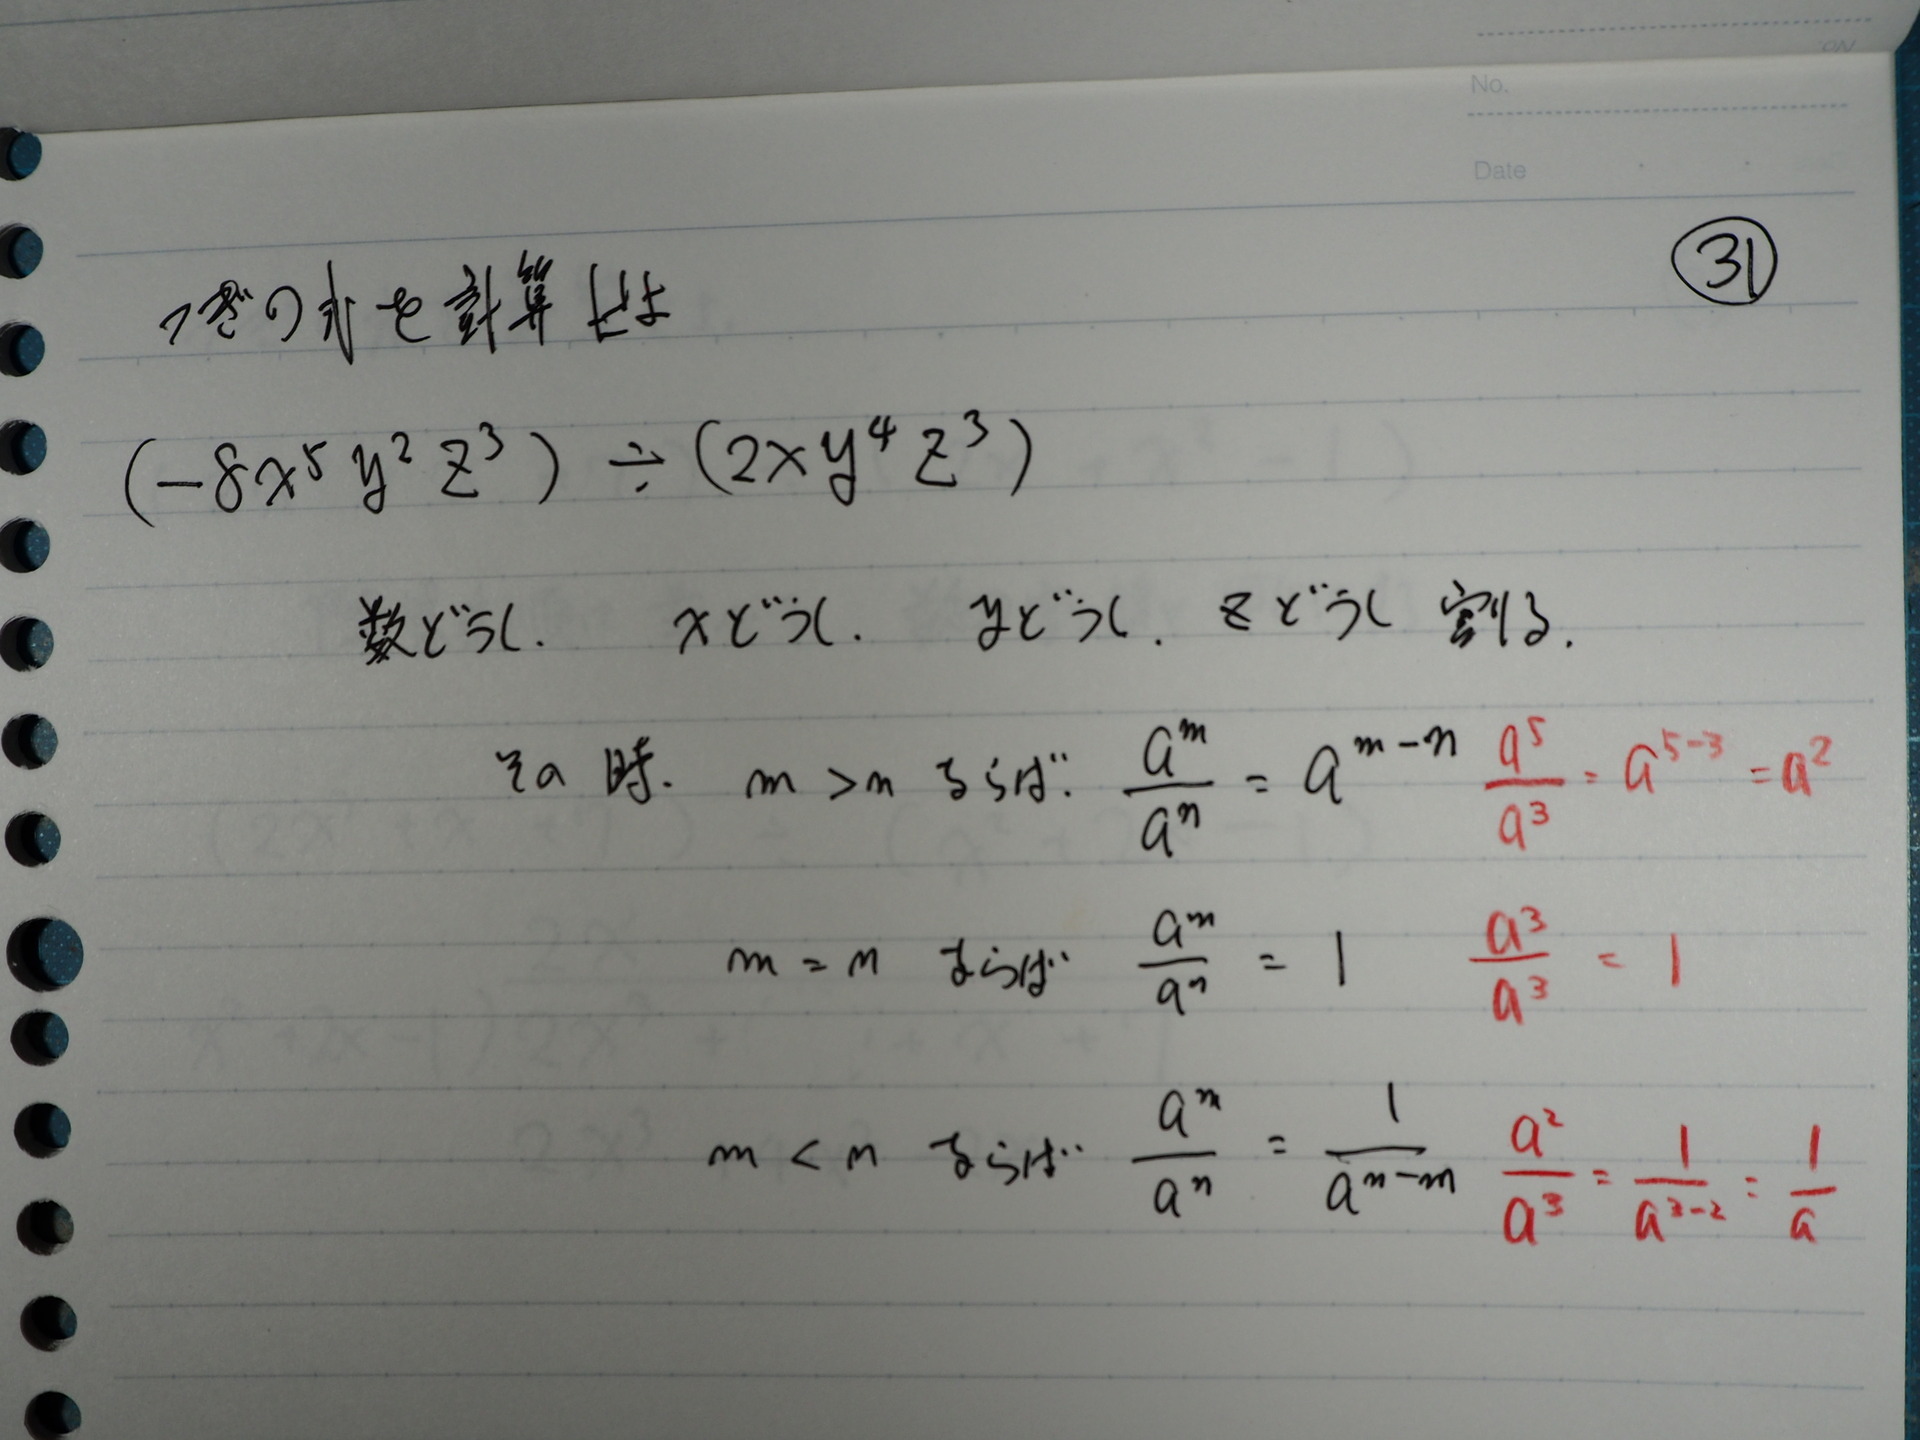 No.
Date
31
つぎの式を計算せよ
(-8x⁵y²z³) ÷ (2xy⁴z³)
数どうし. xどうし. yどうし. zどうし 割る.
その時. m > n ならば. a^m/a^n = a^(m-n) a⁵/a³ = a^(5-3) = a²
m = n ならば a^m/a^n = 1 a³/a³ = 1
m < n ならば a^m/a^n = 1/a^(n-m) a²/a³ = 1/a^(3-2) = 1/a